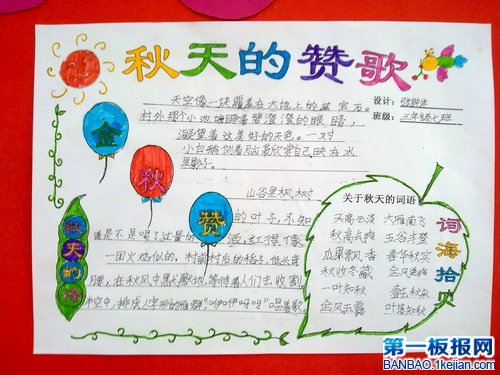 秋天的赞歌
天空像一块覆盖在大地上的蓝宝石。
村外那个小池塘睁着碧澄澄的眼睛，
凝望着这美好的天色。一对
小白鹅侧着脑袋欣赏自己映在水
里影子。
设计：
班级：三年级七班
金
秋
赞
山谷里枫树
的叶子，不知
是不是喝了过量的酒，红得像
一团火焰似的。村前村后的稻子，低头弯
腰，在秋风中默默地等待着人们去收割
半空中，排成人字形的雁群"咿咿呀呀"唱着歌。
秋天的
关于秋天的词语
天高云淡 大雁南飞
秋高气爽 五谷丰登
瓜果飘香 春华秋实
秋收冬藏 金风送爽
一叶知秋 春去秋来
金风玉露 叶落知秋
词海拾贝
第一板报网
BANBAO.1kejian.com